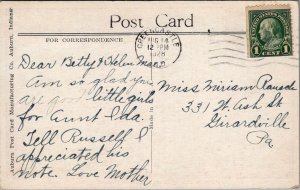 Post Card
FOR CORRESPONDENCE
GREENCASTLE
AUG 14
12 PM
1928
PA.
UNITED STATES POSTAGE
1 CENT 1
Dear Betty & Helen Mae
Am so glad you
are good little girls
for Aunt Ida.
Tell Russell I
appreciated his
note. Love Mother
Miss Miriam
331 W. Ash St
Girardville
Pa
Auburn Post Card Manufacturing Co. Auburn, Indiana